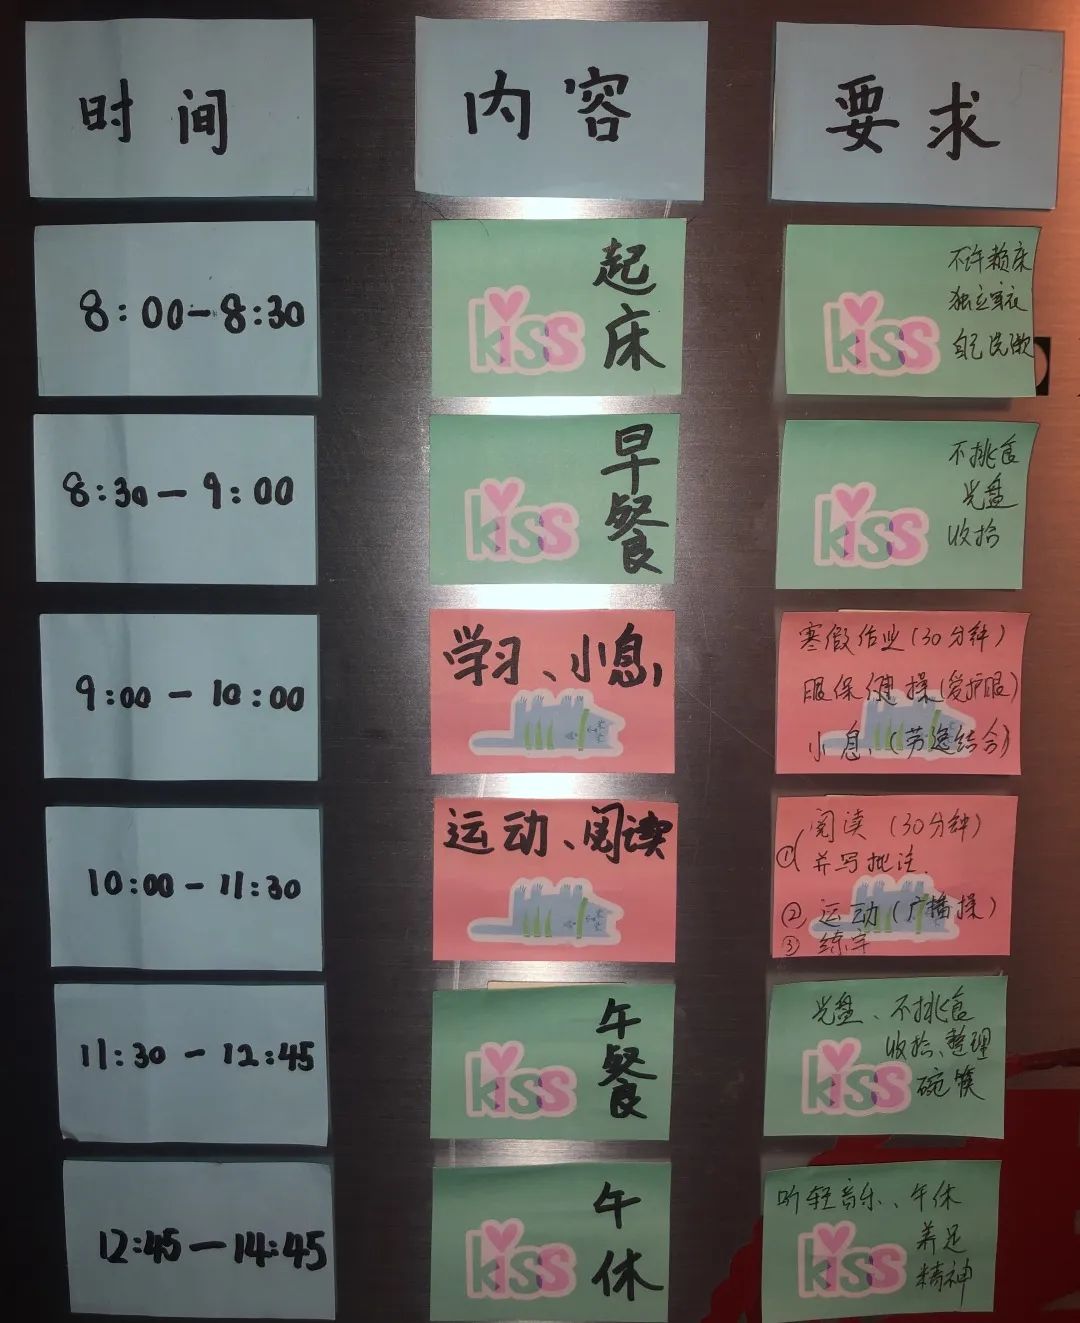 时间 内容 要求
8:00-8:30
起床
kiss
不许赖床
独立穿衣
自己洗漱
kiss
8:30-9:00
早餐
kiss
不挑食
光盘
收拾
kiss
9:00-10:00
学习、小息
寒假作业(30分钟)
眼保健操(爱护眼)
小息、(劳逸结合)
10:00-11:30
运动、阅读
①阅读(30分钟)
并写批注.
②运动(广播操)
③练字
11:30-12:45
午餐
kiss
光盘、不挑食
收拾、整理
碗筷
kiss
12:45-14:45
午休
kiss
听轻音乐、午休
养足
精神
kiss